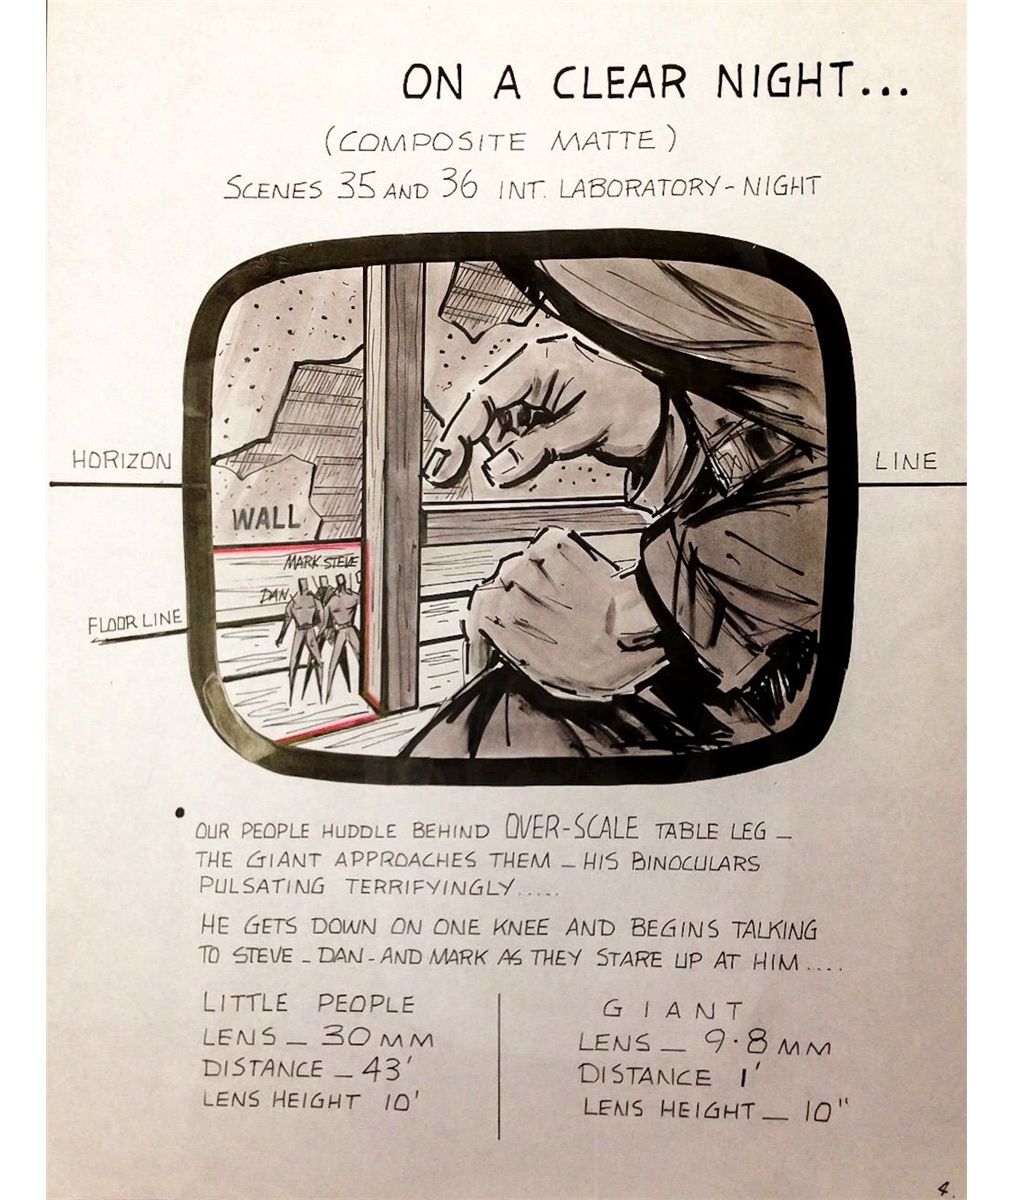 ON A CLEAR NIGHT...
(COMPOSITE MATTE)
SCENES 35 AND 36 INT. LABORATORY - NIGHT
HORIZON LINE
WALL
MARK STEVE
DAN
FLOOR LINE
• OUR PEOPLE HUDDLE BEHIND OVER-SCALE TABLE LEG —
THE GIANT APPROACHES THEM — HIS BINOCULARS
PULSATING TERRIFYINGLY.....
HE GETS DOWN ON ONE KNEE AND BEGINS TALKING
TO STEVE - DAN - AND MARK AS THEY STARE UP AT HIM....
LITTLE PEOPLE
LENS — 30 MM
DISTANCE — 43'
LENS HEIGHT 10'
GIANT
LENS — 9.8 MM
DISTANCE 1'
LENS HEIGHT — 10"
4.